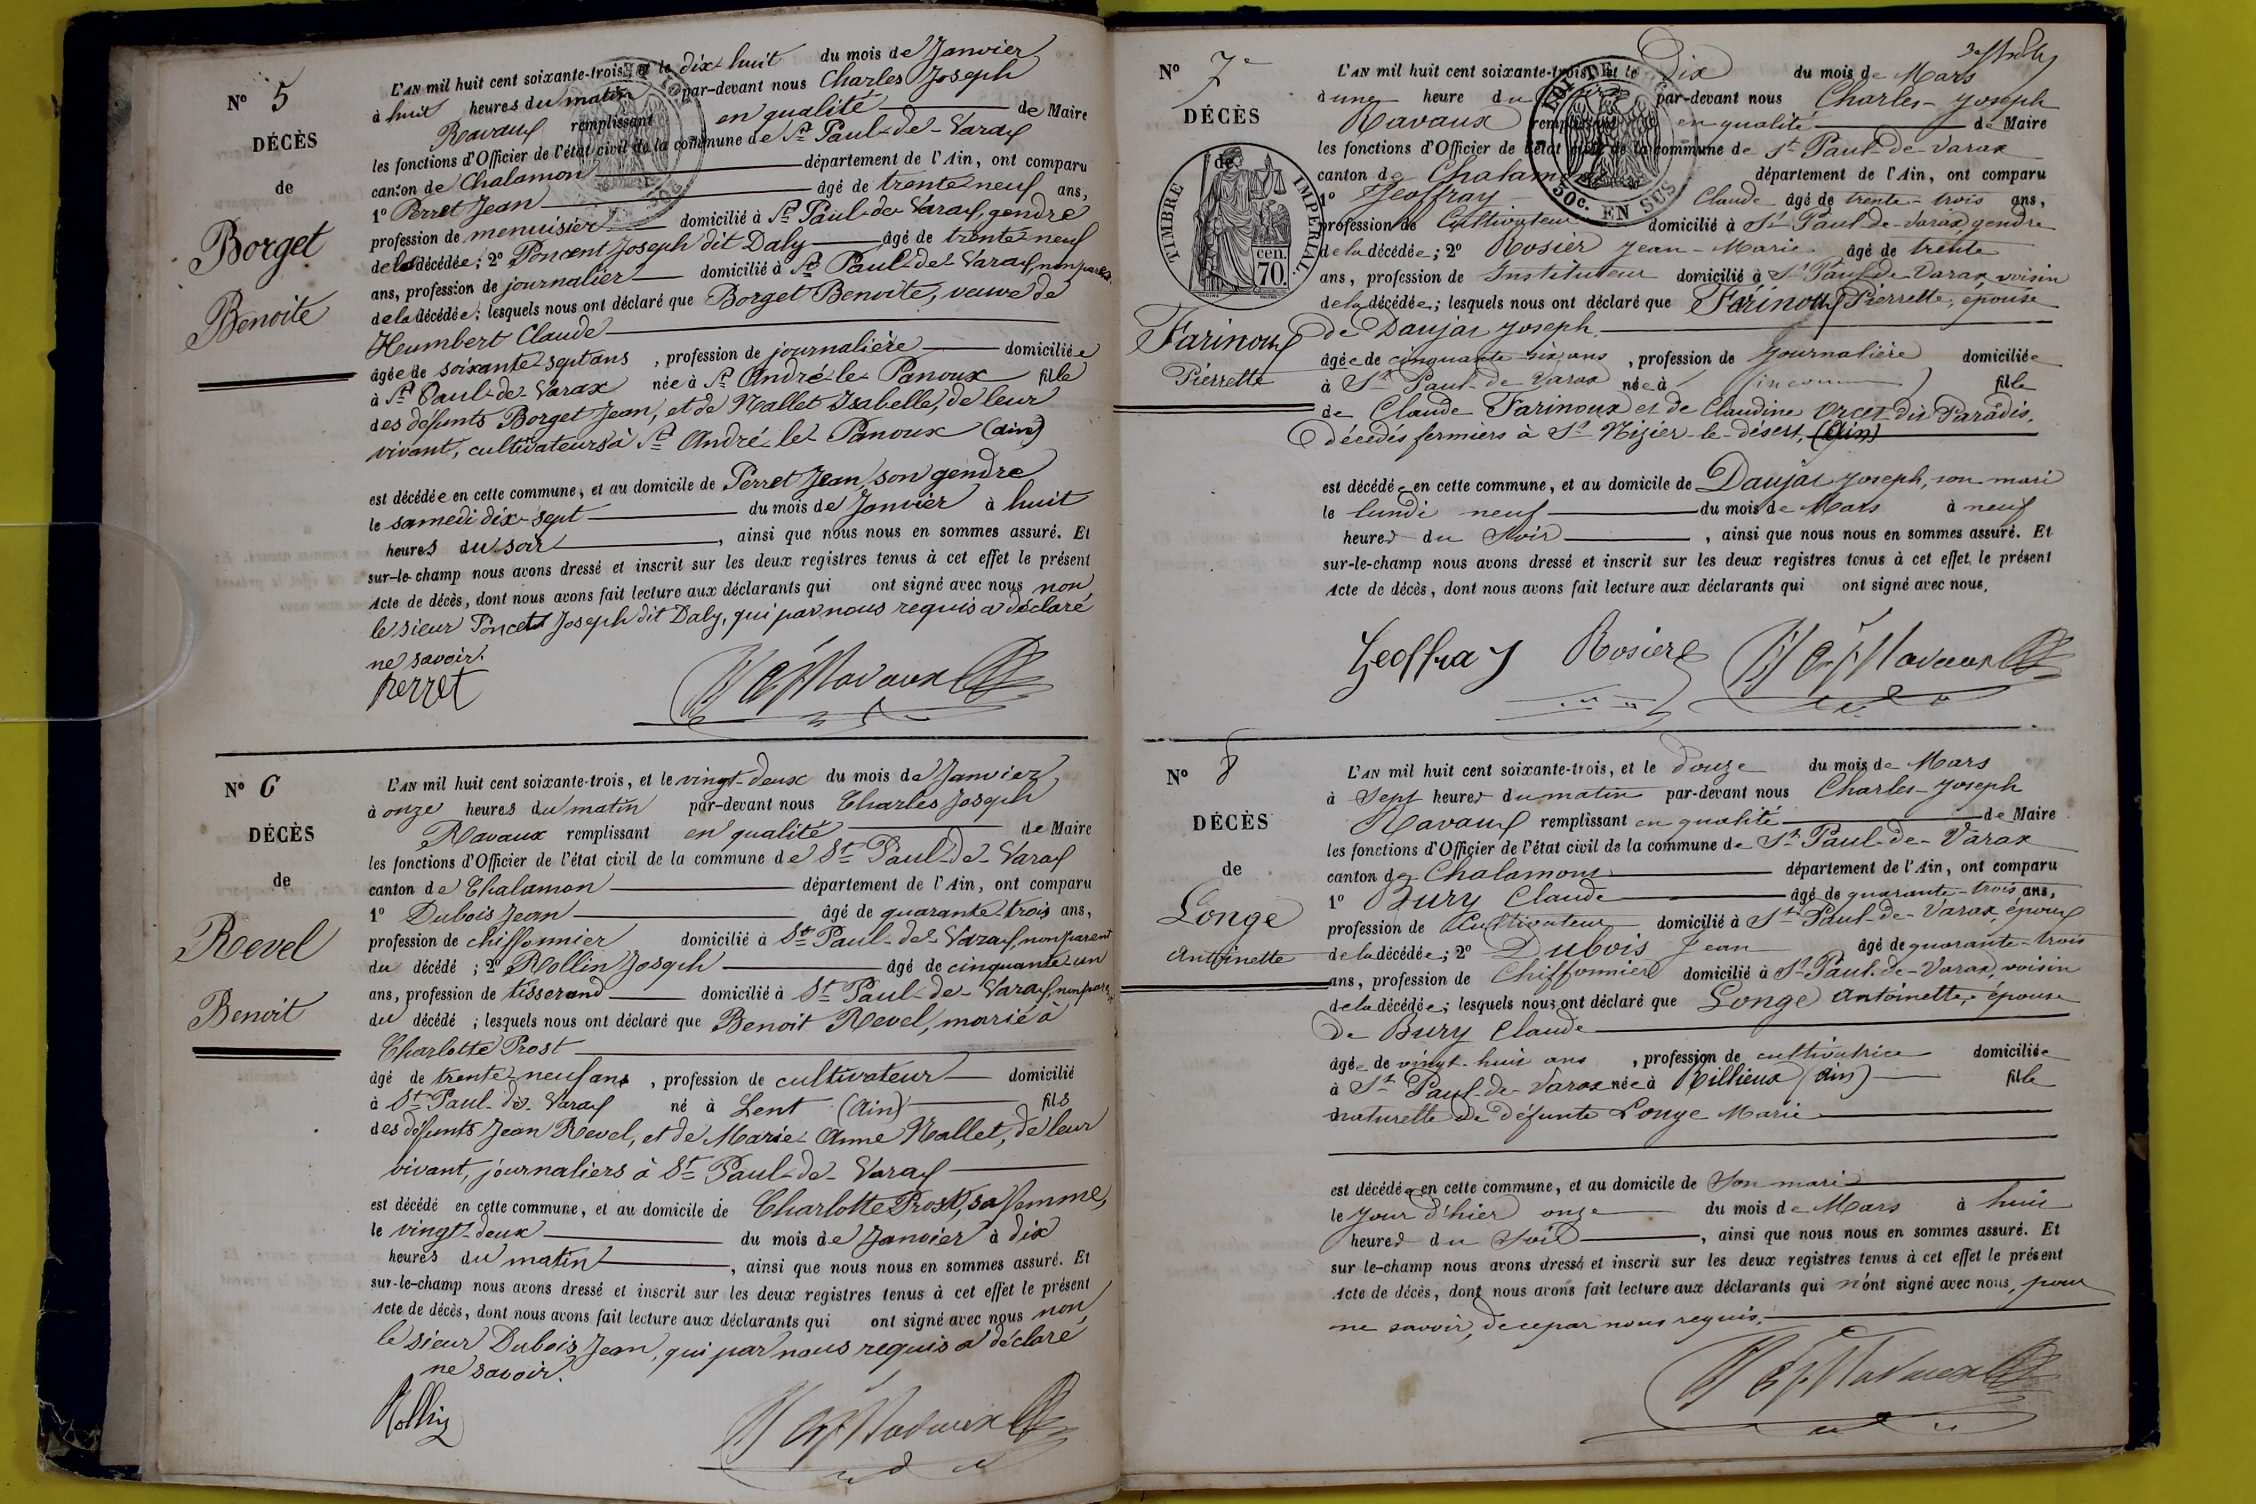 N° 5
DÉCÈS
de
Borget
Benoite
L'AN mil huit cent soixante-trois, et le dix-huit du mois de Janvier
à huit heures du matin par-devant nous Charles Joseph
Ravaux remplissant en qualité de Maire
les fonctions d'Officier de l'état civil de la commune de St Paul-de-Varax
canton de Chalamon département de l'Ain, ont comparu
1° Perret Jean âgé de trente-neuf ans,
profession de menuisier domicilié à St Paul-de-Varax, gendre
de la décédée; 2° Poncent Joseph dit Daly âgé de trente-neuf
ans, profession de journalier domicilié à St Paul-de-Varax, non parent
de la décédée; lesquels nous ont déclaré que Borget Benoite, veuve de
Heumbert Claude
âgée de soixante-sept ans, profession de journalière domiciliée
à St Paul-de-Varax née à St André-le-Panoux fille
des défunts Borget Jean, et de Nallet Isabelle, de leur
vivant, cultivateurs à St André-le-Panoux (Ain)
est décédée en cette commune, et au domicile de Perret Jean, son gendre
le samedi dix-sept du mois de Janvier à huit
heures du soir, ainsi que nous nous en sommes assuré. Et
sur-le-champ nous avons dressé et inscrit sur les deux registres tenus à cet effet le présent
Acte de décès, dont nous avons fait lecture aux déclarants qui ont signé avec nous non
le sieur Poncet Joseph dit Daly, qui par nous requis a déclaré
ne savoir.
perret Ravaux
N° 6
DÉCÈS
de
Revel
Benoit
L'AN mil huit cent soixante-trois, et le vingt-deux du mois de Janvier
à onze heures du matin par-devant nous Charles Joseph
Ravaux remplissant en qualité de Maire
les fonctions d'Officier de l'état civil de la commune de St Paul-de-Varax
canton de Chalamon département de l'Ain, ont comparu
1° Dubois Jean âgé de quarante-trois ans,
profession de chiffonnier domicilié à St Paul-de-Varax, non parent
du décédé; 2° Rollin Joseph âgé de cinquante-un
ans, profession de tisserand domicilié à St Paul-de-Varax, non parent
du décédé; lesquels nous ont déclaré que Benoit Revel, marié à
Charlotte Prost
âgé de trente-neuf ans, profession de cultivateur domicilié
à St Paul-de-Varax né à Lent (Ain) fils
des défunts Jean Revel, et de Marie-Anne Nallet, de leur
vivant, journaliers à St Paul-de-Varax
est décédé en cette commune, et au domicile de Charlotte Prost, sa femme,
le vingt-deux du mois de Janvier à dix
heures du matin, ainsi que nous nous en sommes assuré. Et
sur-le-champ nous avons dressé et inscrit sur les deux registres tenus à cet effet le présent
Acte de décès, dont nous avons fait lecture aux déclarants qui ont signé avec nous non
le sieur Dubois Jean, qui par nous requis a déclaré
ne savoir.
Rollin Ravaux
N° 7e
DÉCÈS
de
TIMBRE IMPÉRIAL
cen.
70.
30c. EN SUS
Farinoux
Pierrette
L'AN mil huit cent soixante-trois, et le Dix du mois de Mars
à une heure du par-devant nous Charles-Joseph
Ravaux remplissant en qualité de Maire
les fonctions d'Officier de l'état civil de la commune de St Paul-de-Varax
canton de Chalamont département de l'Ain, ont comparu
1° Geoffray Claude âgé de trente-trois ans,
profession de Cultivateur domicilié à St Paul-de-Varax, gendre
de la décédée; 2° Rosier Jean-Marie âgé de trente
ans, profession de Instituteur domicilié à St Paul-de-Varax, voisin
de la décédée; lesquels nous ont déclaré que Farinoux Pierrette, épouse
de Daujat Joseph
âgée de cinquante-six ans, profession de Journalière domiciliée
à St Paul-de-Varax née à (inconnu) fille
de Claude Farinoux et de Claudine Orcet dit Paradis,
décédés fermiers à St Nizier-le-désert, (Ain)
est décédée en cette commune, et au domicile de Daujat Joseph, son mari
le lundi neuf du mois de Mars à neuf
heures du Soir, ainsi que nous nous en sommes assuré. Et
sur-le-champ nous avons dressé et inscrit sur les deux registres tenus à cet effet le présent
Acte de décès, dont nous avons fait lecture aux déclarants qui ont signé avec nous.
Geoffray Rosier Ravaux
N° 8
DÉCÈS
de
Longe
Antoinette
L'AN mil huit cent soixante-trois, et le Douze du mois de Mars
à Sept heures du matin par-devant nous Charles-Joseph
Ravaux remplissant en qualité de Maire
les fonctions d'Officier de l'état civil de la commune de St Paul-de-Varax
canton de Chalamont département de l'Ain, ont comparu
1° Bury Claude âgé de quarante-trois ans,
profession de Cultivateur domicilié à St Paul-de-Varax, époux
de la décédée; 2° Dubois Jean âgé de quarante-trois
ans, profession de Chiffonnier domicilié à St Paul-de-Varax, voisin
de la décédée; lesquels nous ont déclaré que Longe Antoinette, épouse
de Bury Claude
âgée de vingt-huit ans, profession de cultivatrice domiciliée
à St Paul-de-Varax née à Rillieux (Ain) fille
naturelle de défunte Longe Marie
est décédée en cette commune, et au domicile de Son mari
le Jour d'hier onze du mois de Mars à huit
heures du Soir, ainsi que nous nous en sommes assuré. Et
sur le-champ nous avons dressé et inscrit sur les deux registres tenus à cet effet le présent
Acte de décès, dont nous avons fait lecture aux déclarants qui n'ont signé avec nous, pour
ne savoir, de ce par nous requis.
Ravaux